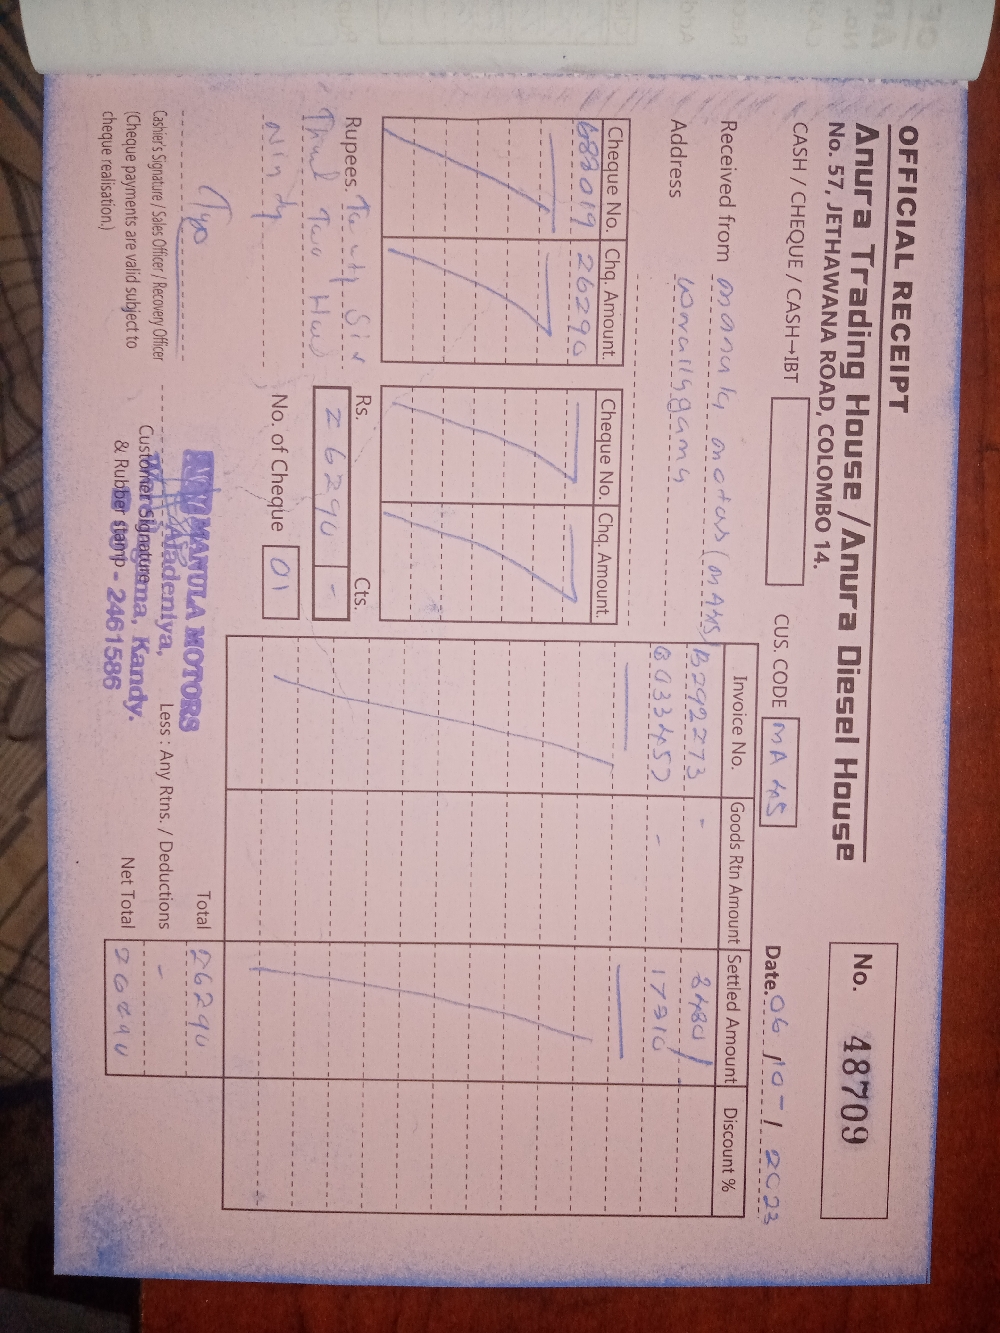 OFFICIAL RECEIPT
Anura Trading House / Anura Diesel House
No. 57, JETHAWANA ROAD, COLOMBO 14.
No. 48709
CASH / CHEQUE / CASH→IBT
CUS. CODE MA 45
Date. 06 / 10 - / 2023
Received from manula motors (MA45)
Address
Cheque No. Chq. Amount.
683019 26290
Cheque No. Chq. Amount.
Rs. Cts.
Rupees. Twenty Six
Thud Two Hund
Ninety
26290 -
No. of Cheque 01
Invoice No. Goods Rtn Amount Settled Amount Discount %
B292273 -
B033457 - 17810
Total 26290
Less : Any Rtns. / Deductions -
Net Total 26290
Cashier's Signature / Sales Officer / Recovery Officer
(Cheque payments are valid subject to
cheque realisation.)
MANULA MOTORS
Aladeniya,
Kandy.
- 2461586
Customer Signature
& Rubber stamp